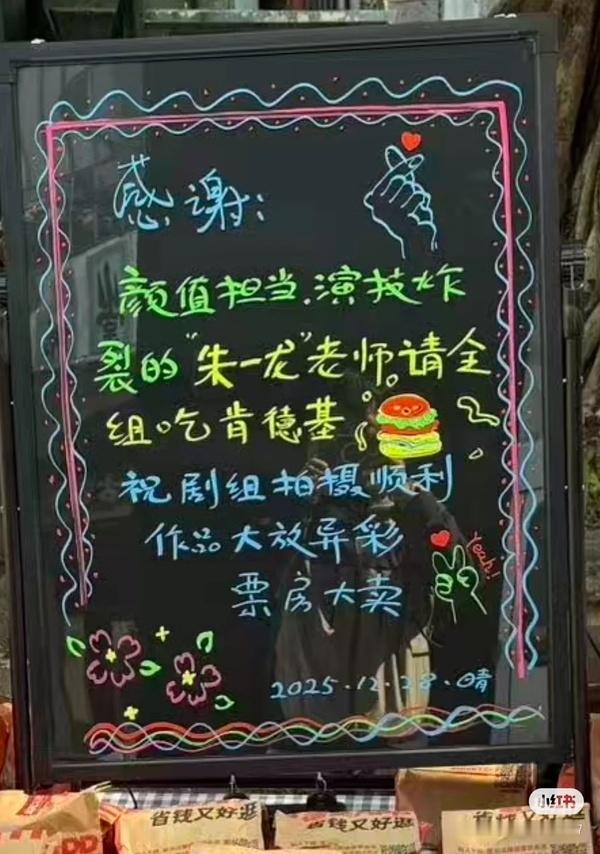 感谢:
颜值担当.演技炸
裂的"朱一龙"老师请全
组吃肯德基
祝剧组拍摄顺利
作品大放异彩
票房大卖
Yeah!
2025.12.28.晴
省钱又好逛
省钱又好逛
省钱又好逛
小红书